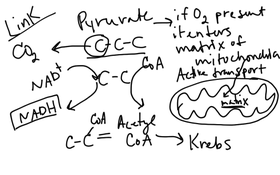 Link
Pyruvate → if O2 present
it enters
matrix of
mitochondria
Active transport
CO2 ← C-C-C
NAD+
C-C
CoA
NADH
matrix
CoA
C-C=
Acetyl
CoA → Krebs